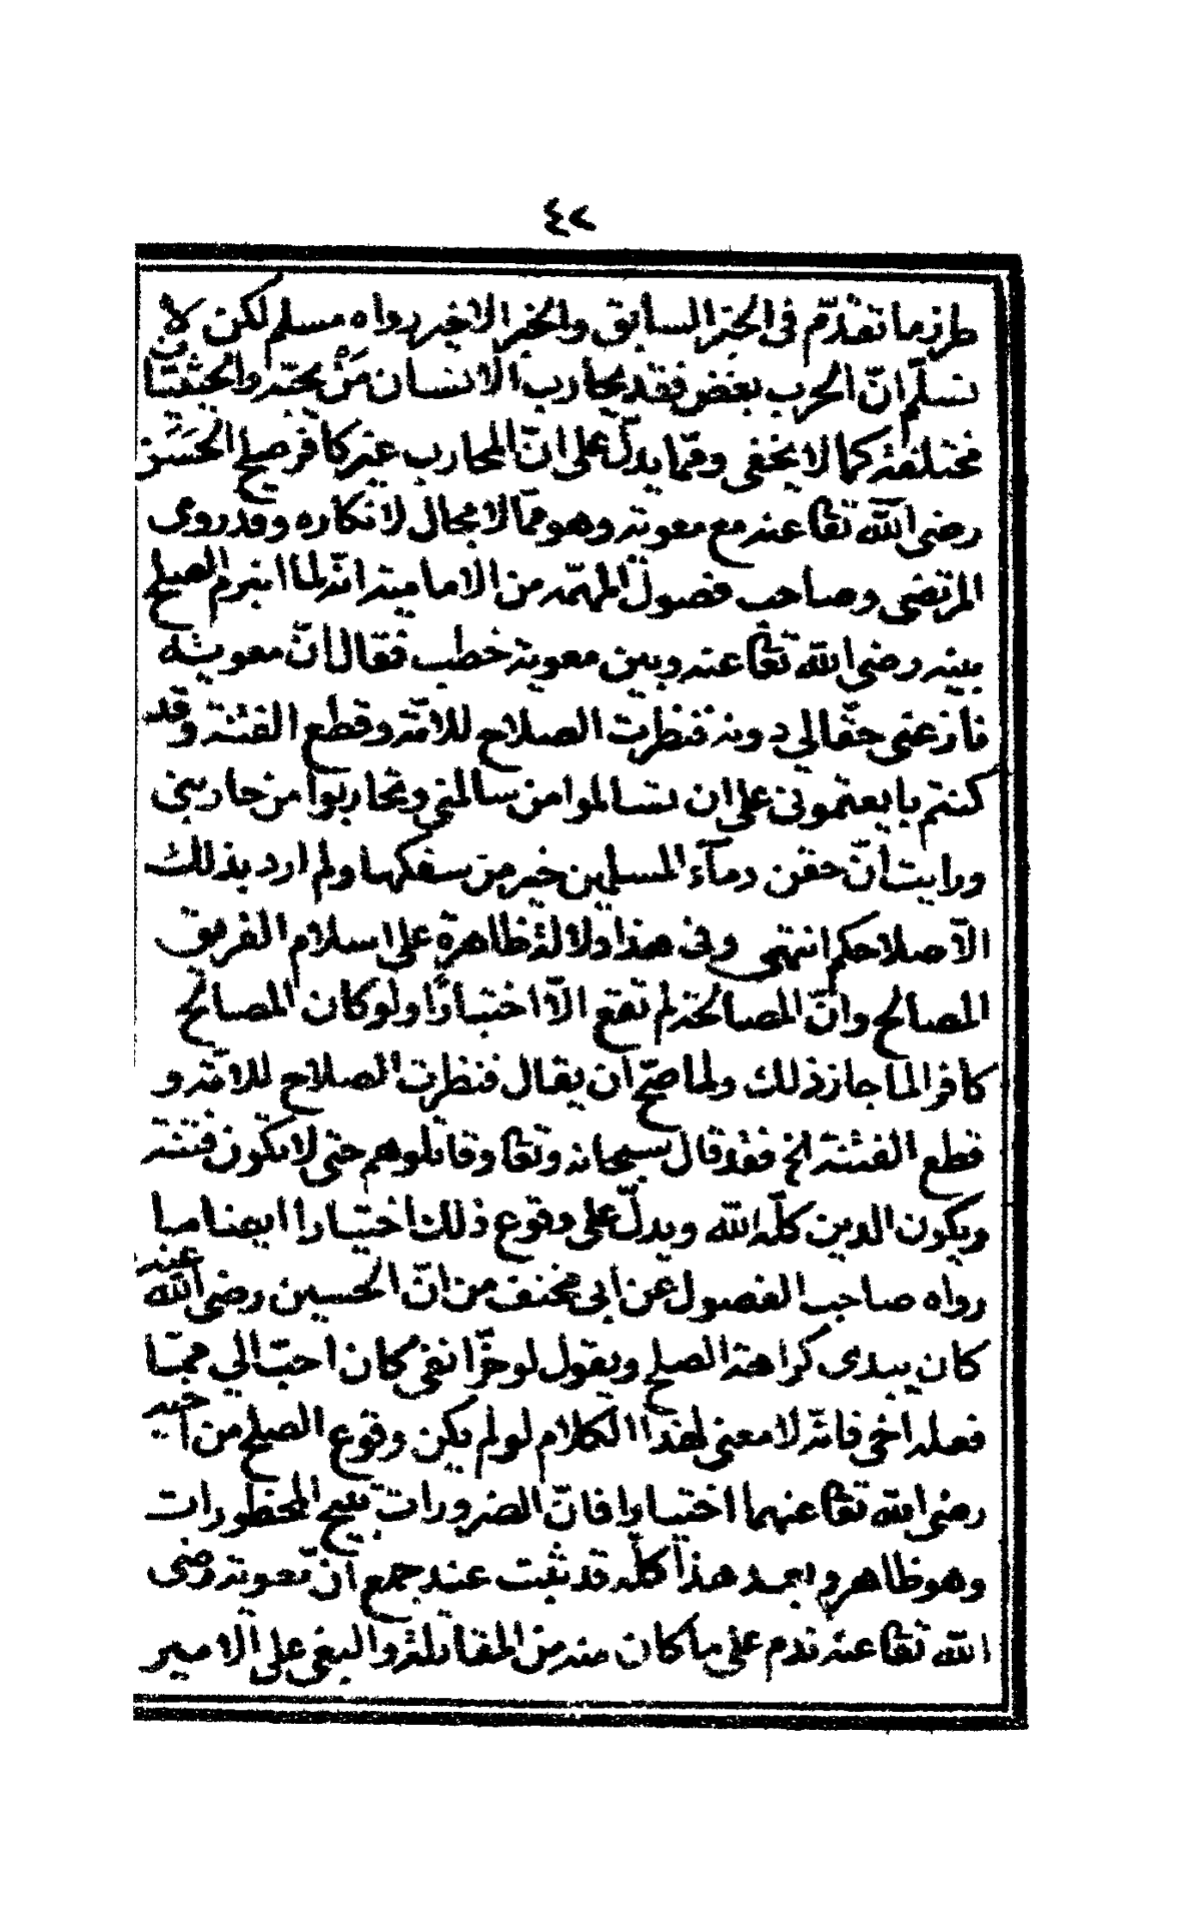 ٤٢
طرز ما تقدّم فى الخبر السابق والخبر الاخير رواه مسلم لكن لا
نسلّم انّ الحرب بغض فقد يحارب الانسان مَنْ يحبّه والحيثيّتان
مختلفة كما لا يخفى وممّا يدلّ على انّ المحارب غير كافر صلح الحَسَن
رضى اللّٰه تعا عنه مع معوية وهو ممّا لا مجال لانكاره وقد روى
المرتضى وصاحب فصول المهمّه من الامامية انّه لما انبرم الصلح
بينه رضى الله تعا عنه وبين معوية خطب فقال انّ معوية
نازعنى حقّا لى دونه فنظرت الصلاح للامّة وقطع الفتنة وقد
كنتم بايعتمونى على ان تسالموا من سالمنى وتحاربوا من حاربنى
ورايت أنّ حقن دمآء المسلمين خير من سفكها ولم ارد بذلك
الّا صلاحكم انتهى وفى هذا دلالة ظاهرة على اسلام الفريق
المصالح وانّ المصالحة لم تقع الّا اختيارًا ولو كان المصالح
كافرا لما جاز ذلك ولما صحّ ان يقال فنظرت الصلاح للامّة و
قطع الفتنة الخ فقد قال سبحانه وتعا وقاتلوهم حتى لا تكون فتنة
ويكون الدين كلّه الله ويدلّ على وقوع ذلك اختيارا ايضا ما
رواه صاحب الفصول عن ابى مخنف من انّ الحسين رضى الله عنه
كان يبدى كراهة الصلح ويقول لو جزّ انفى كان احبّ الى ممّا
فعله اخى فانّه لا معنى لهذا الكلام لو لم يكن وقوع الصلح من اخيه
رضى الله تعا عنهما اختيارا فانّ الضرورات تبيح المحظورات
وهو ظاهر وبعد هذا كلّه قد ثبت عند جمع انّ معوية رضى
الله تعا عنه ندم على ما كان منه من المقاتلة والبغى على الامير